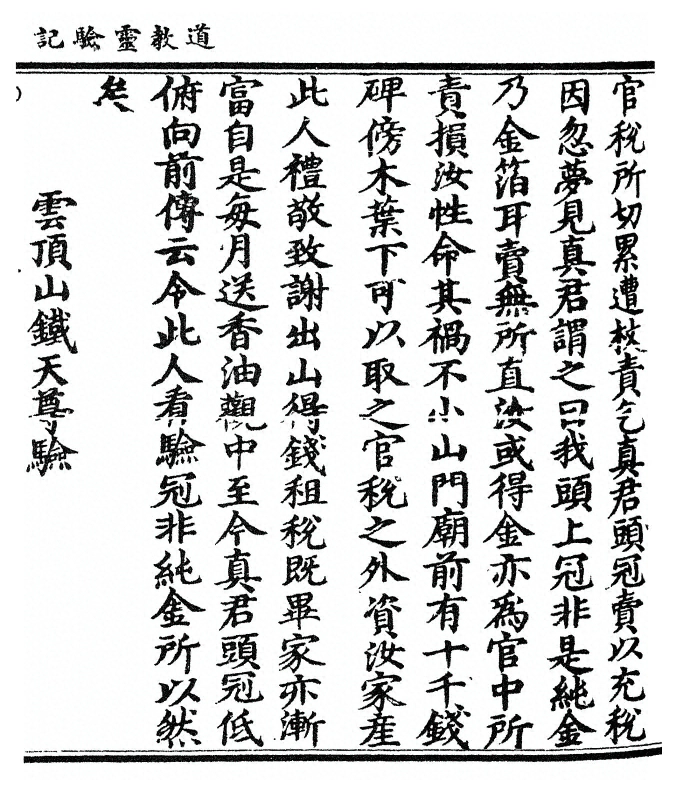 道教靈驗記
官稅所切累遭杖責乞真君頭冠賣以充稅
因忽夢見真君謂之曰我頭上冠非是純金
乃金箔耳賣無所直汝或得金亦為官中所
責損汝性命其禍不小山門廟前有十千錢
碑傍木葉下可以取之官稅之外資汝家産
此人禮敬致謝出山得錢租稅既畢家亦漸
富自是每月送香油觀中至今真君頭冠低
俯向前傳云令此人看驗冠非純金所以然
矣
雲頂山鐵天尊驗